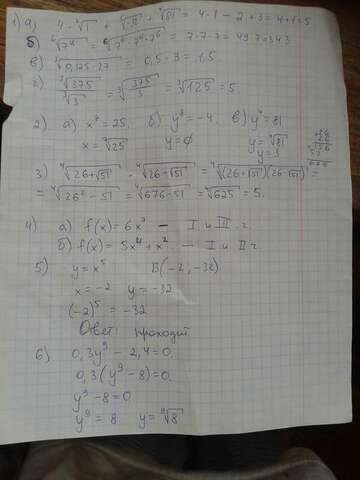 1) а) 4·√1 + ∛-8 + ∜81 = 4·1 - 2 + 3 = 4+1=5
б) ⁶√7¹⁸ = ⁶√7⁶·7⁶·7⁶ = 7·7·7 = 49·7=343
в) ∛0,125·27 = 0,5·3 = 1,5
г) ∛375 / ∛3 = ∛(375/3) = ∛125 = 5.
2) а) x⁷=25. б) y⁸=-4. в) y⁴=81
x=⁷√25 y=∅ y=∜81
y=3
3) ∜26+√51 · ∜26-√51 = ∜(26+√51)(26-√51) =
= ∜26²-51 = ∜676-51 = ∜625 = 5.
4) а) f(x)=6x³ – I и III ч.
б) f(x)=5x⁴+x² – I и II ч.
5) y=x⁵ B(-2,-32)
x=-2 y=-32
(-2)⁵ = -32
Ответ: проходит
6) 0,3y⁹ - 2,4=0.
0,3(y⁹-8)=0.
y⁹-8=0
y⁹=8 y=⁹√8